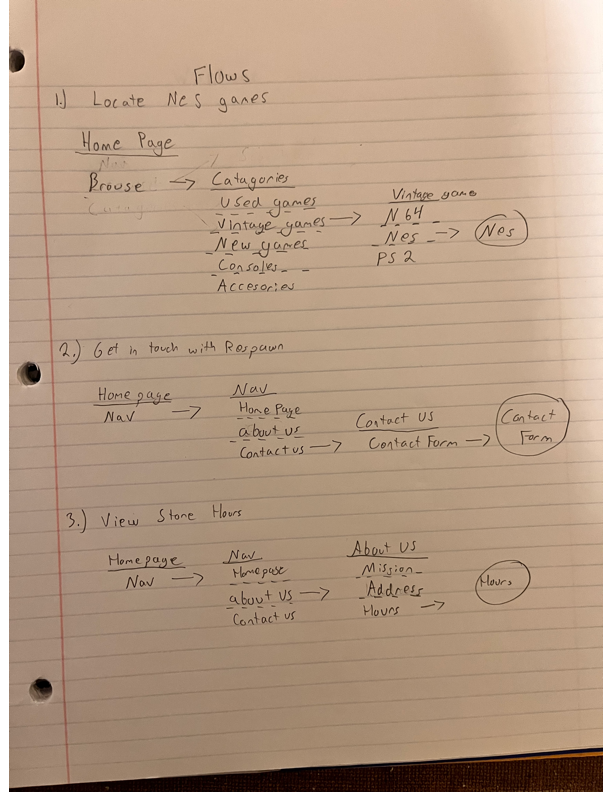 Flows
1.) Locate Nes games
Home Page
Browse → Catagories
Used games
Vintage games →
New games
Consoles
Accesories
Vintage game
N64
Nes → Nes
PS2
2.) Get in touch with Respawn
Home page
Nav →
Nav
Home Page
about us
Contact us →
Contact Us
Contact Form →
Contact
Form
3.) View Store Hours
Home page
Nav →
Nav
Homepage
about us →
Contact us
About Us
Mission
Address
Hours →
Hours